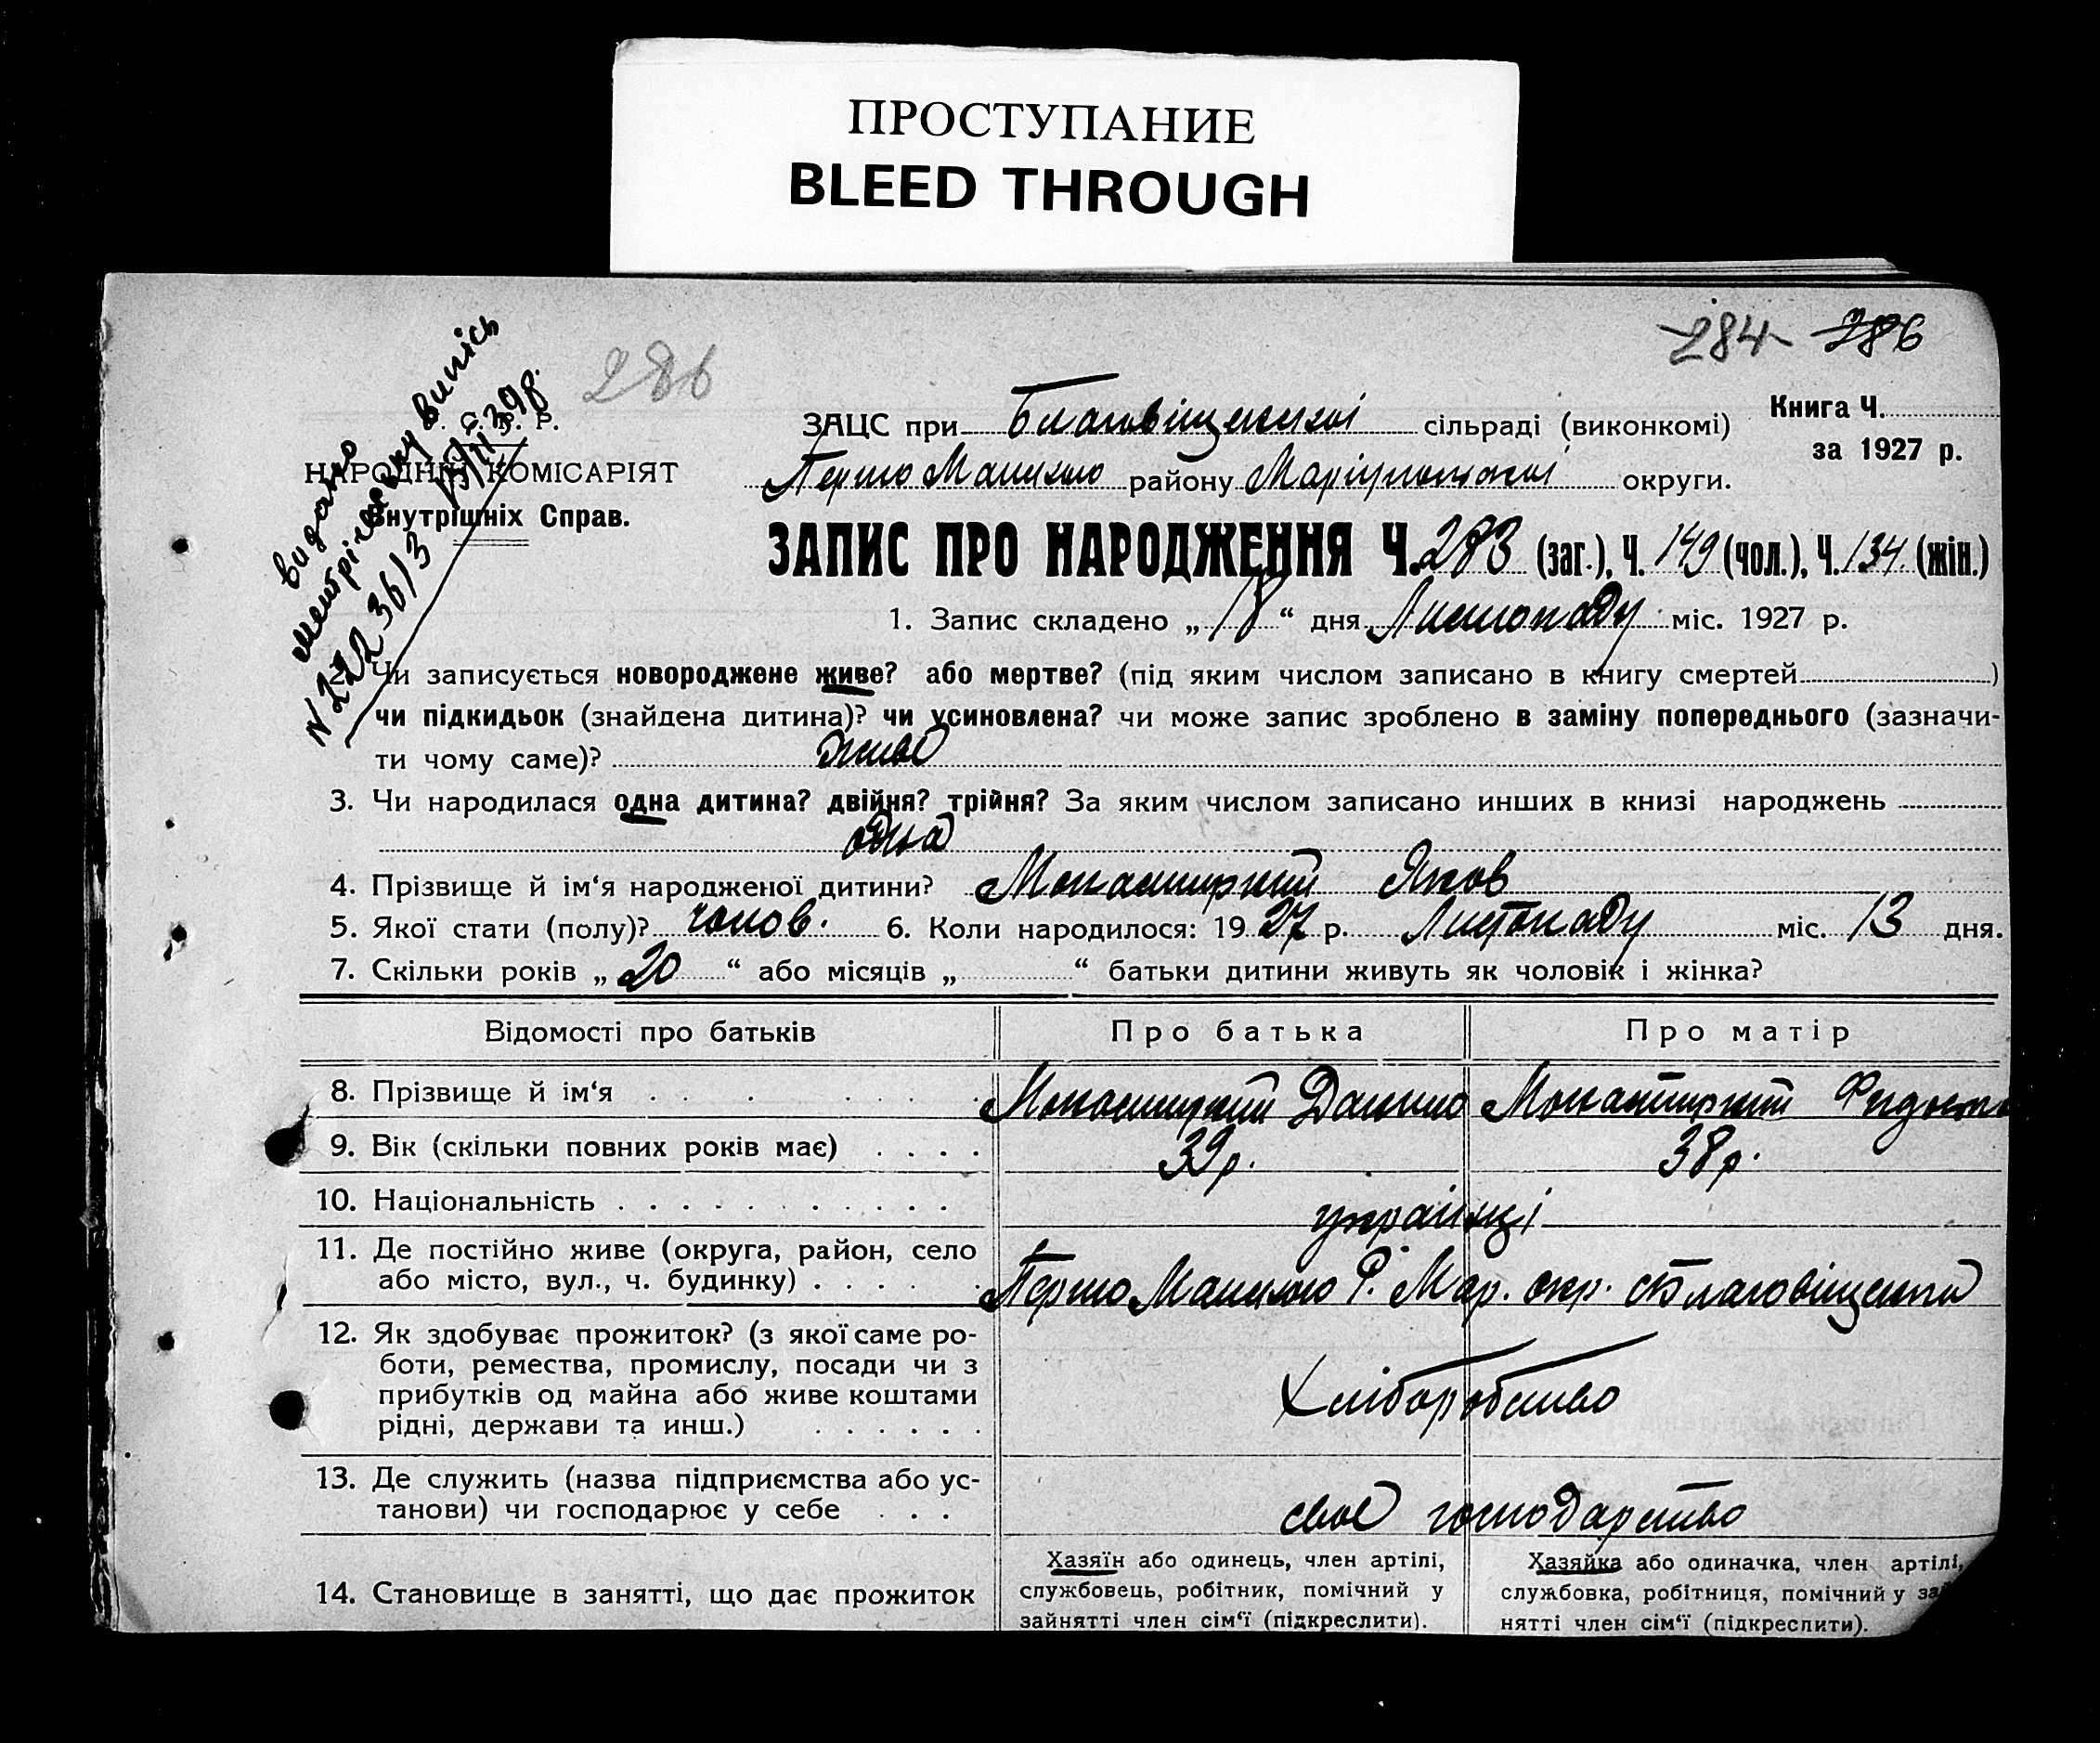 ПРОСТУПАНИЕ
BLEED THROUGH
284 286
286
видано
метрічну випісь
N 222 36/3
У. С. Р. Р.
НАРОДНІЙ КОМІСАРІЯТ
Внутрішніх Справ.
Книга Ч.
за 1927 р.
ЗАЦС при Благовіщенскі сільраді (виконкомі)
Першо Манський району Маріупольскої округи.
ЗАПИС ПРО НАРОДЖЕННЯ Ч. 283 (заг.), Ч. 149 (чол.), Ч. 134 (жін.)
1. Запис складено „ 18 “ дня Листопаду міс. 1927 р.
2. Чи записується новороджене живе? або мертве? (під яким числом записано в книгу смертей )
чи підкидьок (знайдена дитина)? чи усиновлена? чи може запис зроблено в заміну попереднього (зазначи-
ти чому саме)? живе
3. Чи народилася одна дитина? двійня? трійня? За яким числом записано инших в книзі народжень
одна
4. Прізвище й ім‘я народженої дитини? Монастирский Яков
5. Якої стати (полу)? чолов. 6. Коли народилося: 1927 р. Листопаду міс. 13 дня.
7. Скільки років „ 20 “ або місяців „ “ батьки дитини живуть як чоловік і жінка?
Відомості про батьків Про батька Про матір
8. Прізвище й ім‘я Монастирский Данило Монастирский
9. Вік (скільки повних років має) 39р. 38р.
10. Національність українці
11. Де постійно живе (округа, район, село
або місто, вул., ч. будинку) Р. Мар. окр. с Благовіщенка
12. Як здобуває прожиток? (з якої саме ро-
боти, ремества, промислу, посади чи з
прибутків од майна або живе коштами
рідні, держави та инш.) Хліборобство
13. Де служить (назва підприємства або ус-
танови) чи господарює у себе своє господарство
14. Становище в занятті, що дає прожиток
Хазяїн або одинець, член артілі,
службовець, робітник, помічний у
зайнятті член сім‘ї (підкреслити).
Хазяйка або одиначка, член артілі,
службовка, робітниця, помічний у зай-
нятті член сім‘ї (підкреслити).